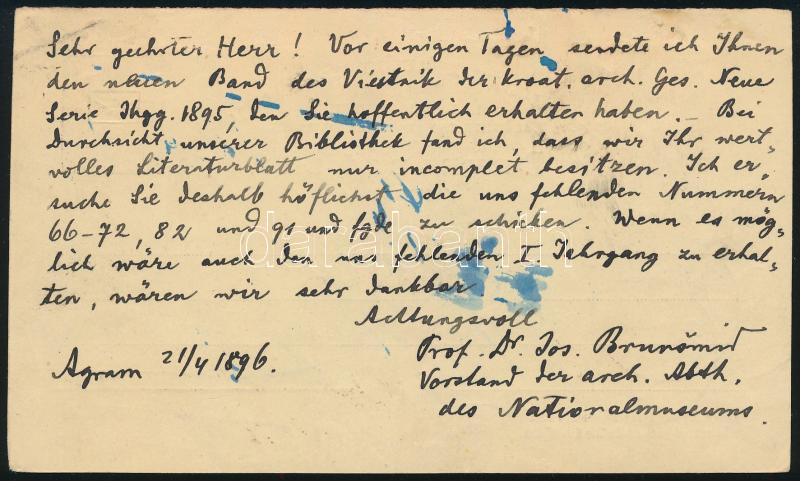 Sehr geehrter Herr! Vor einigen Tagen sendete ich Ihnen
den neuen Band des Viestnik der kroat. arch. Ges. Neue
Serie Jhgg. 1895, den Sie hoffentlich erhalten haben. – Bei
Durchsicht unserer Bibliothek fand ich, dass wir Ihr wert-
volles Literaturblatt nur incomplet besitzen. Ich er-
suche Sie deshalb höflichst die uns fehlenden Nummern
66–72, 82 und 91 und zu schicken. Wenn es mög-
lich wäre auch den uns fehlenden I Jahrgang zu erhal-
ten, wären wir sehr dankbar
Achtungsvoll
Prof. Dr. Jos. Brunšmid
Agram 21/4 1896.
Vorstand der arch. Abth.
des Nationalmuseums.
darabanth